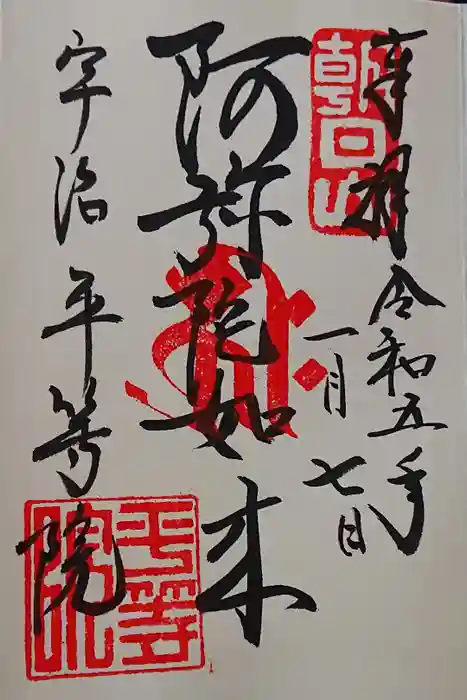 奉拝
令和五年
一月七日
阿弥陀如来
宇治 平等院
朝日山
平等院